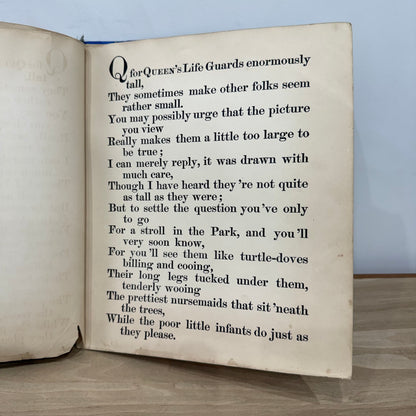 Q for QUEEN's Life Guards enormously
tall,
They sometimes make other folks seem
rather small.
You may possibly urge that the picture
you view
Really makes them a little too large to
be true;
I can merely reply, it was drawn with
much care,
Though I have heard they're not quite
as tall as they were;
But to settle the question you've only
to go
For a stroll in the Park, and you'll
very soon know,
For you'll see them like turtle-doves
billing and cooing,
Their long legs tucked under them,
tenderly wooing
The prettiest nursemaids that sit 'neath
the trees,
While the poor little infants do just as
they please.